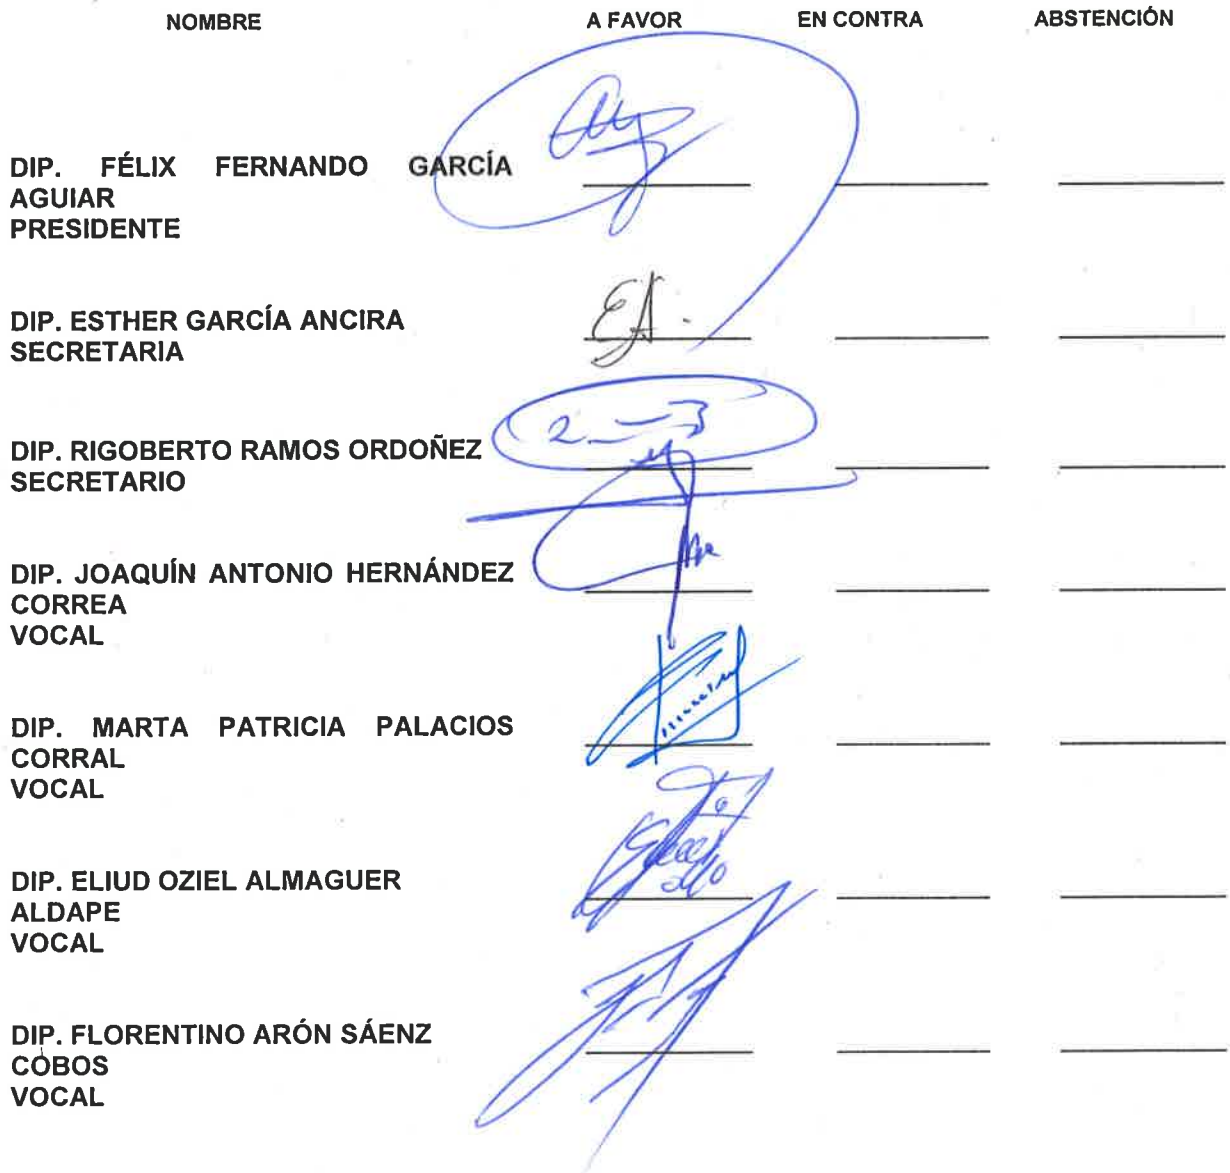 NOMBRE A FAVOR EN CONTRA ABSTENCIÓN
DIP. FÉLIX FERNANDO GARCÍA
AGUIAR
PRESIDENTE
DIP. ESTHER GARCÍA ANCIRA
SECRETARIA
DIP. RIGOBERTO RAMOS ORDOÑEZ
SECRETARIO
DIP. JOAQUÍN ANTONIO HERNÁNDEZ
CORREA
VOCAL
DIP. MARTA PATRICIA PALACIOS
CORRAL
VOCAL
DIP. ELIUD OZIEL ALMAGUER
ALDAPE
VOCAL
DIP. FLORENTINO ARÓN SÁENZ
COBOS
VOCAL